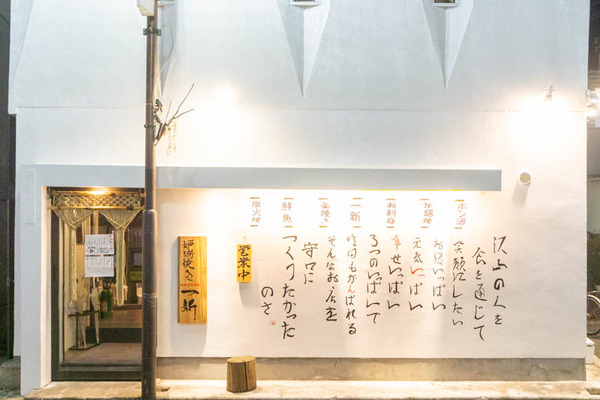 炉端焼
お刺身
一新
藁焼き
鮮魚
沢山の人を
食を通じて
笑顔にしたい
お腹いっぱい
元気いっぱい
幸せいっぱい
3つのいっぱいで
明日もがんばれる
そんなお店を
守口に
つくりたかった
のさ
営業中
炉端焼き
一新